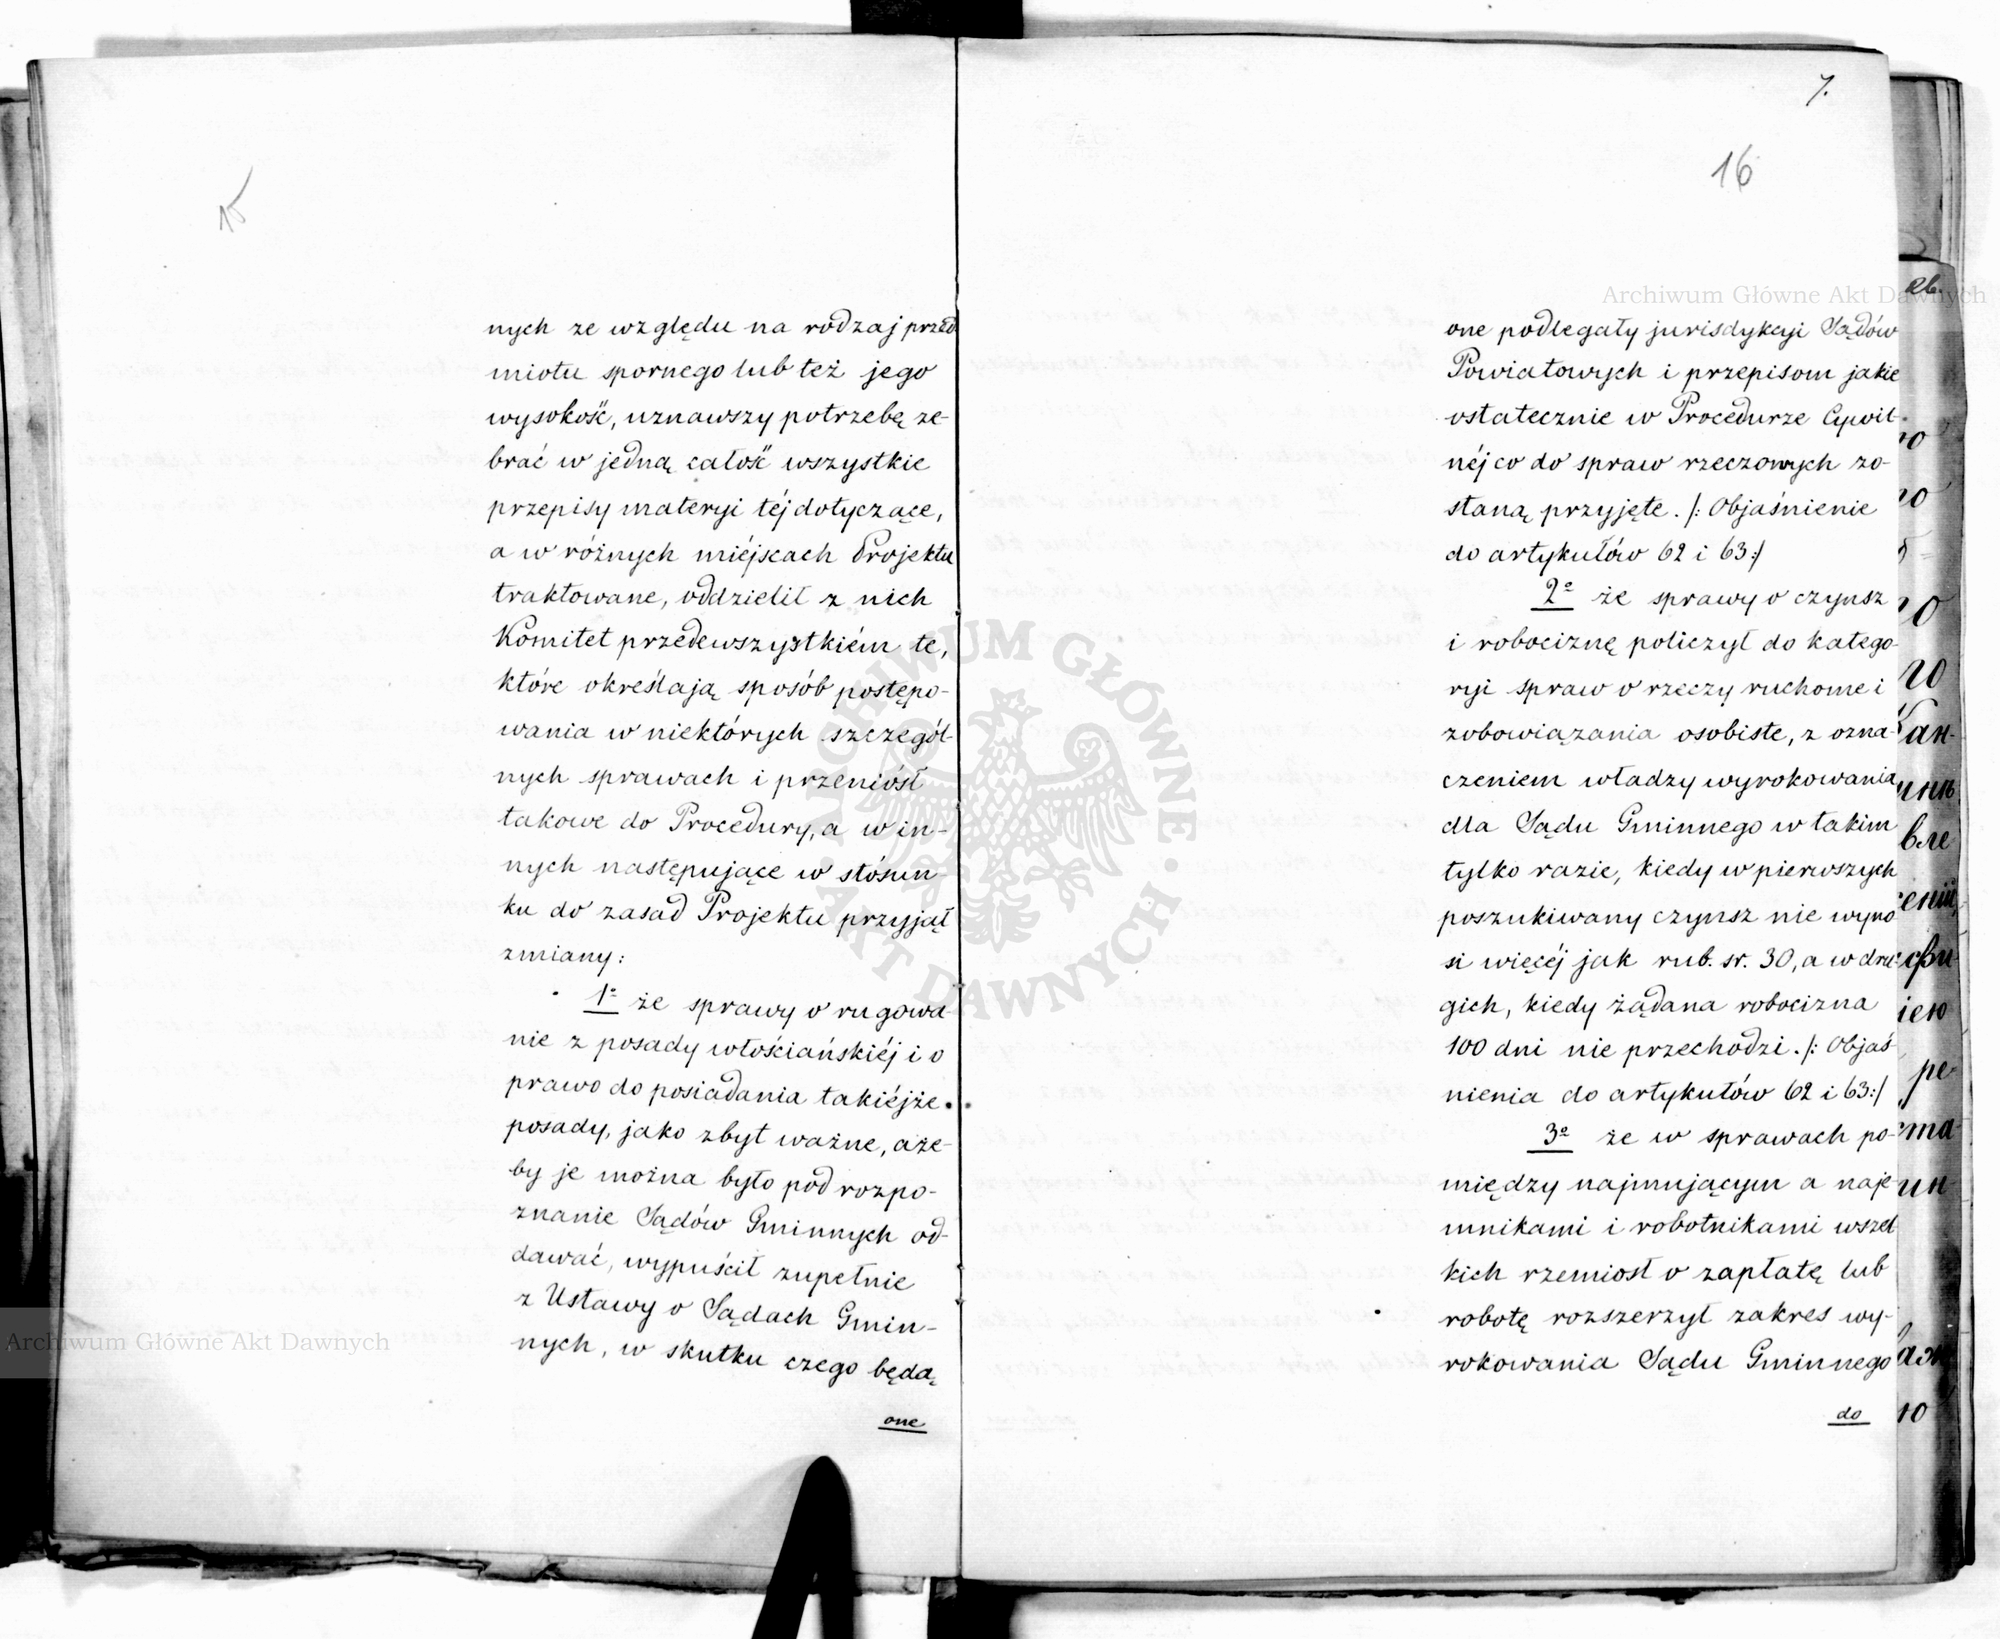 15
nych ze względu na rodzaj przed
miotu spornego lub też jego
wysokość, uznawszy potrzebę ze-
brać w jedną całość wszystkie
przepisy materyi téj dotyczące,
a w różnych miéjscach Projektu
traktowane, oddzielił z nich
Komitet przedewszystkiém te,
które określają sposób postępo-
wania w niektórych szczegól-
nych sprawach i przeniósł
takowe do Procedury, a w in-
nych następujące w stósun-
ku do zasad Projektu przyjął
zmiany:
1° że sprawy o rugowa-
nie z posady włościańskiéj i o
prawo do posiadania takiéjże
posady, jako zbyt ważne, aże-
by je można było pod rozpo-
znanie Sądów Gminnych od-
dawać, wypuścił zupełnie
z Ustawy o Sądach Gmin-
nych, w skutku czego będą
one
7.
16
one podlegały jurisdykcyi Sądów
Powiatowych i przepisom jakie
ostatecznie w Procedurze Cywil-
néj co do spraw rzeczowych zo-
staną przyjęte. /: Objaśnienie
do artykułów 62 i 63:/
2° że sprawy o czynsz
i robociznę policzył do katego-
ryi spraw o rzeczy ruchome i
zobowiązania osobiste, z ozna-
czeniem władzy wyrokowania
dla Sądu Gminnego w takim
tylko razie, kiedy w pierwszych
poszukiwany czynsz nie wyno
si więcéj jak rub. sr. 30, a w dru-
gich, kiedy żądana robocizna
100 dni nie przechodzi. /: Objaś-
nienia do artykułów 62 i 63:/
3° że w sprawach po-
między najmującym a naje
mnikami i robotnikami wszel
kich rzemiosł o zapłatę lub
robotę rozszerzył zakres wy-
rokowania Sądu Gminnego
do
Archiwum Główne Akt Dawnych
Archiwum Główne Akt Dawnych
ARCHIWUM GŁÓWNE AKT DAWNYCH